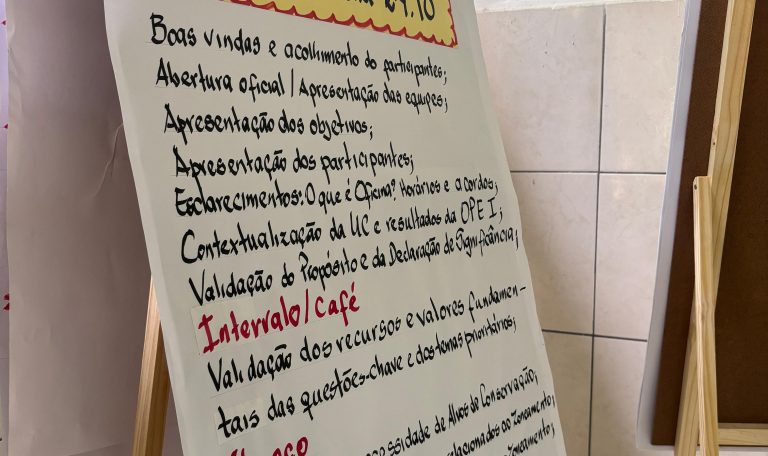 24.10
Boas vindas e acolhimento do participantes;
Abertura oficial / Apresentação das equipes;
Apresentação dos objetivos;
Apresentação dos participantes;
Esclarecimentos: O que é Oficina? Horários e acordos;
Contextualização da UC e resultados da OPE I;
Validação do Propósito e da Declaração de Significância;
Intervalo/Café
Validação dos recursos e valores fundamen-
tais das questões-chave e dos temas prioritários;
de Alvos de Conservação;
relacionados ao zoneamento;